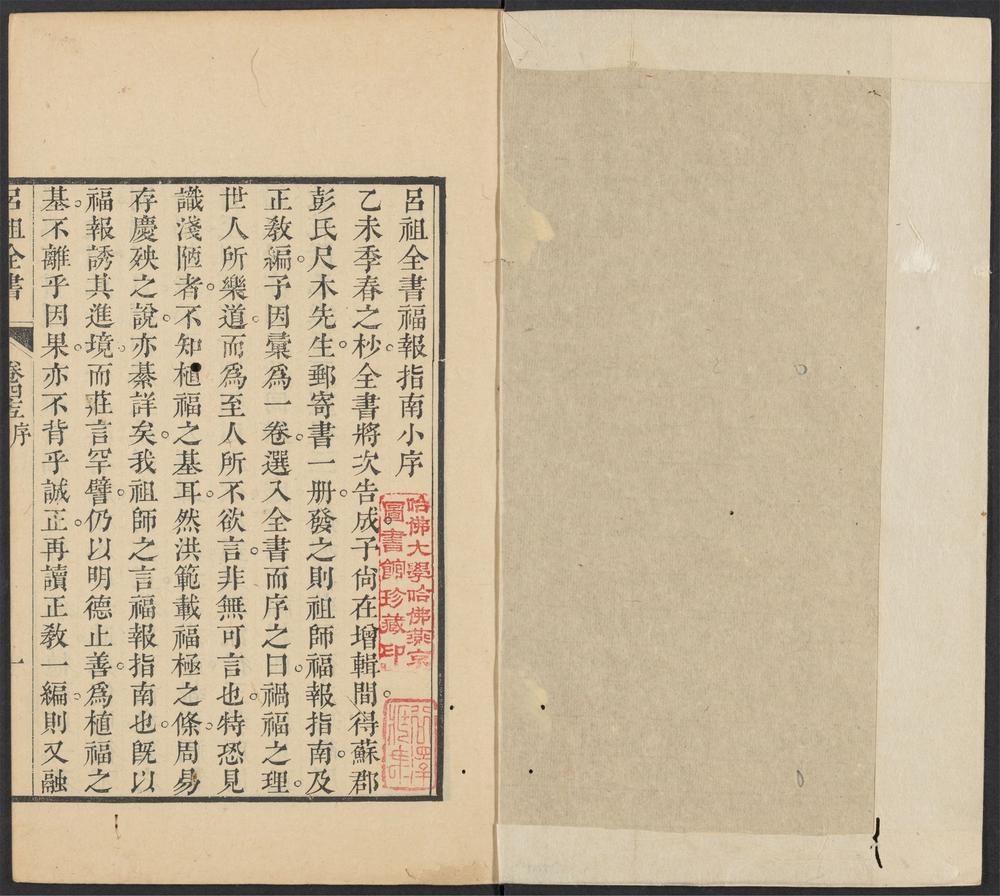 呂祖全書福報指南小序
乙未季春之杪。全書將次告成。予尙在增輯間。得蘇郡
彭氏尺木先生。郵寄書一册。發之則祖師福報指南。及
正敎編。予因彙爲一卷。選入全書而序之曰。禍福之理。
世人所樂道。而爲至人所不欲言。非無可言也。特恐見
識淺陋者。不知植福之基耳。然洪範載福極之條。周易
存慶殃之說。亦綦詳矣。我祖師之言福報指南也。旣以
福報誘其進境。而莊言罕譬。仍以明德止善。爲植福之
基。不離乎因果。亦不背乎誠正。再讀正敎一編。則又融
呂祖全書
卷四五序
一
哈佛大學哈佛燕京
圖書館珍藏印